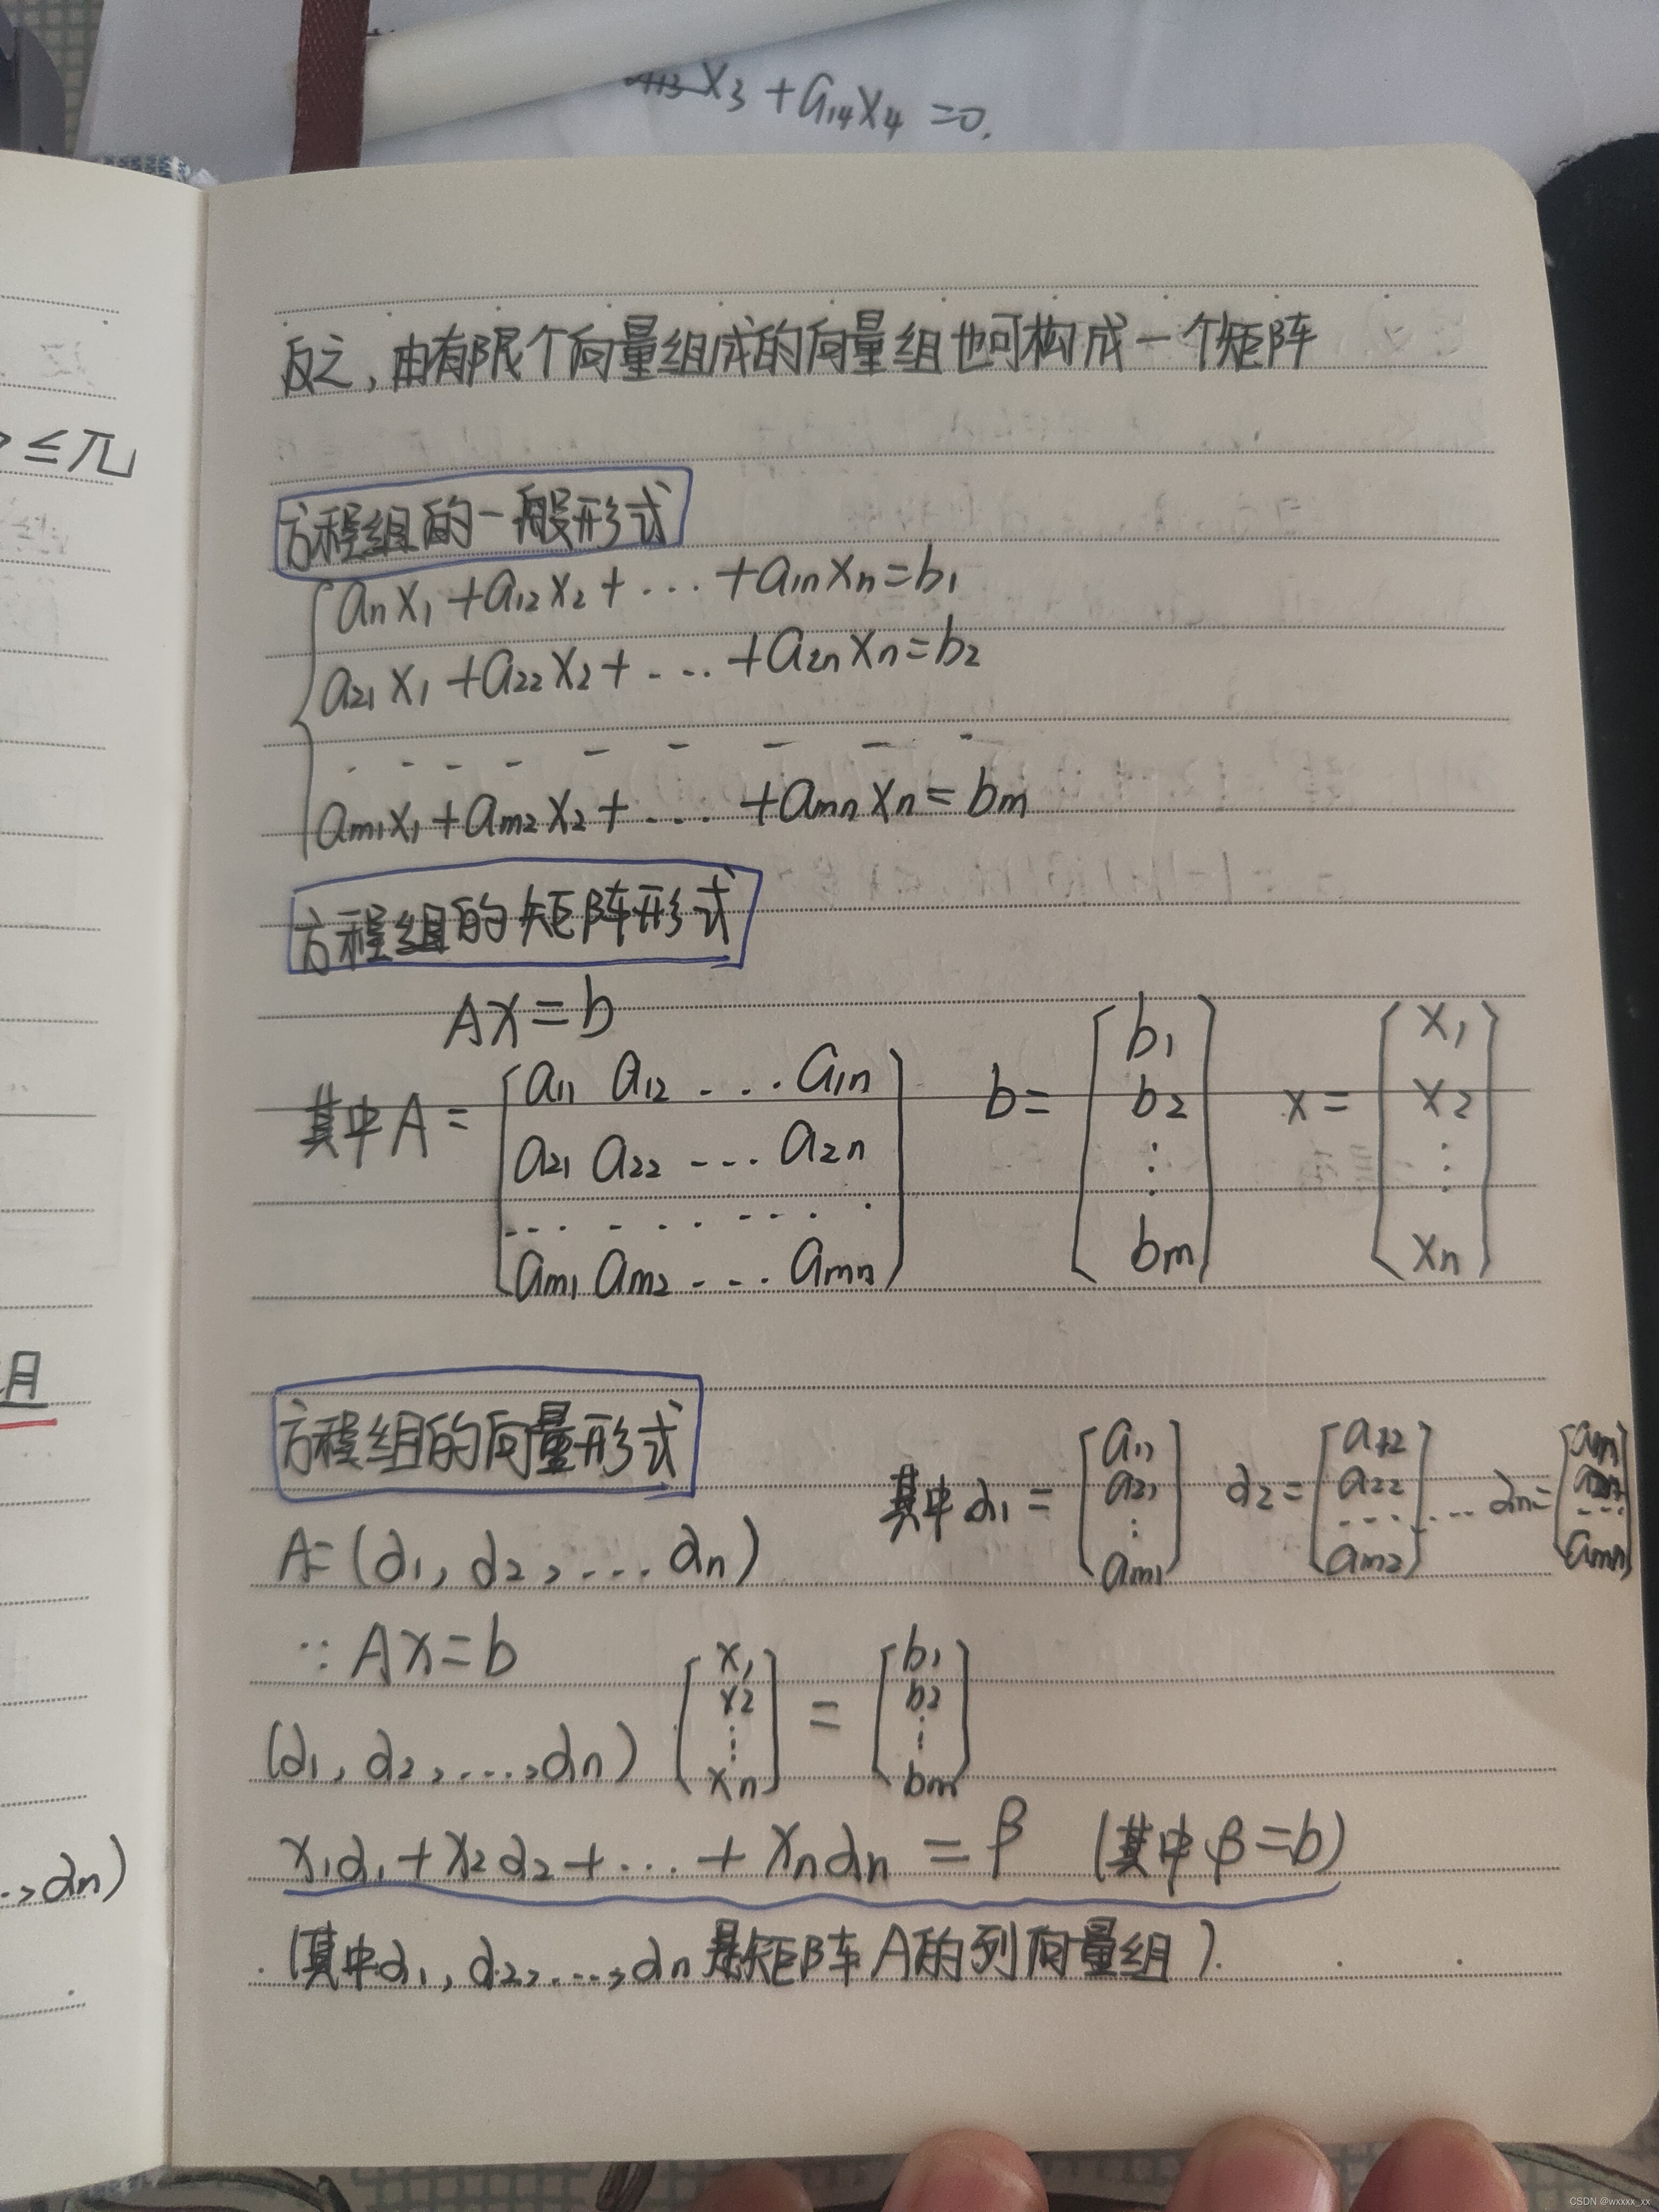 x₃ + a₁₄x₄ = 0.
反之，由有限个向量组成的向量组也可构成一个矩阵
≤π
方程组的一般形式
a₁₁x₁ + a₁₂x₂ + ... + a₁ₙxₙ = b₁
a₂₁x₁ + a₂₂x₂ + ... + a₂ₙxₙ = b₂
- - - - - - - - -
aₘ₁x₁ + aₘ₂x₂ + ... + aₘₙxₙ = bₘ
方程组的矩阵形式
Ax = b
其中 A = [a₁₁ a₁₂ ... a₁ₙ; a₂₁ a₂₂ ... a₂ₙ; ......... ; aₘ₁ aₘ₂ ... aₘₙ] b = [b₁; b₂; ⋮; bₘ] x = [x₁; x₂; ⋮; xₙ]
月
方程组的向量形式
其中 α₁ = [a₁₁; a₂₁; ⋮; aₘ₁] α₂ = [a₁₂; a₂₂; ...; aₘ₂] ... αₙ = [a₁ₙ; a₂ₙ; ...; aₘₙ]
A = (α₁, α₂, ... αₙ)
∵ Ax = b
(α₁, α₂, ..., αₙ) [x₁; x₂; ⋮; xₙ] = [b₁; b₂; ⋮; bₘ]
x₁α₁ + x₂α₂ + ... + xₙαₙ = β (其中 β = b)
.., αₙ)
(其中 α₁, α₂, ..., αₙ 是矩阵 A 的列向量组).
CSDN @wxxxx_xx